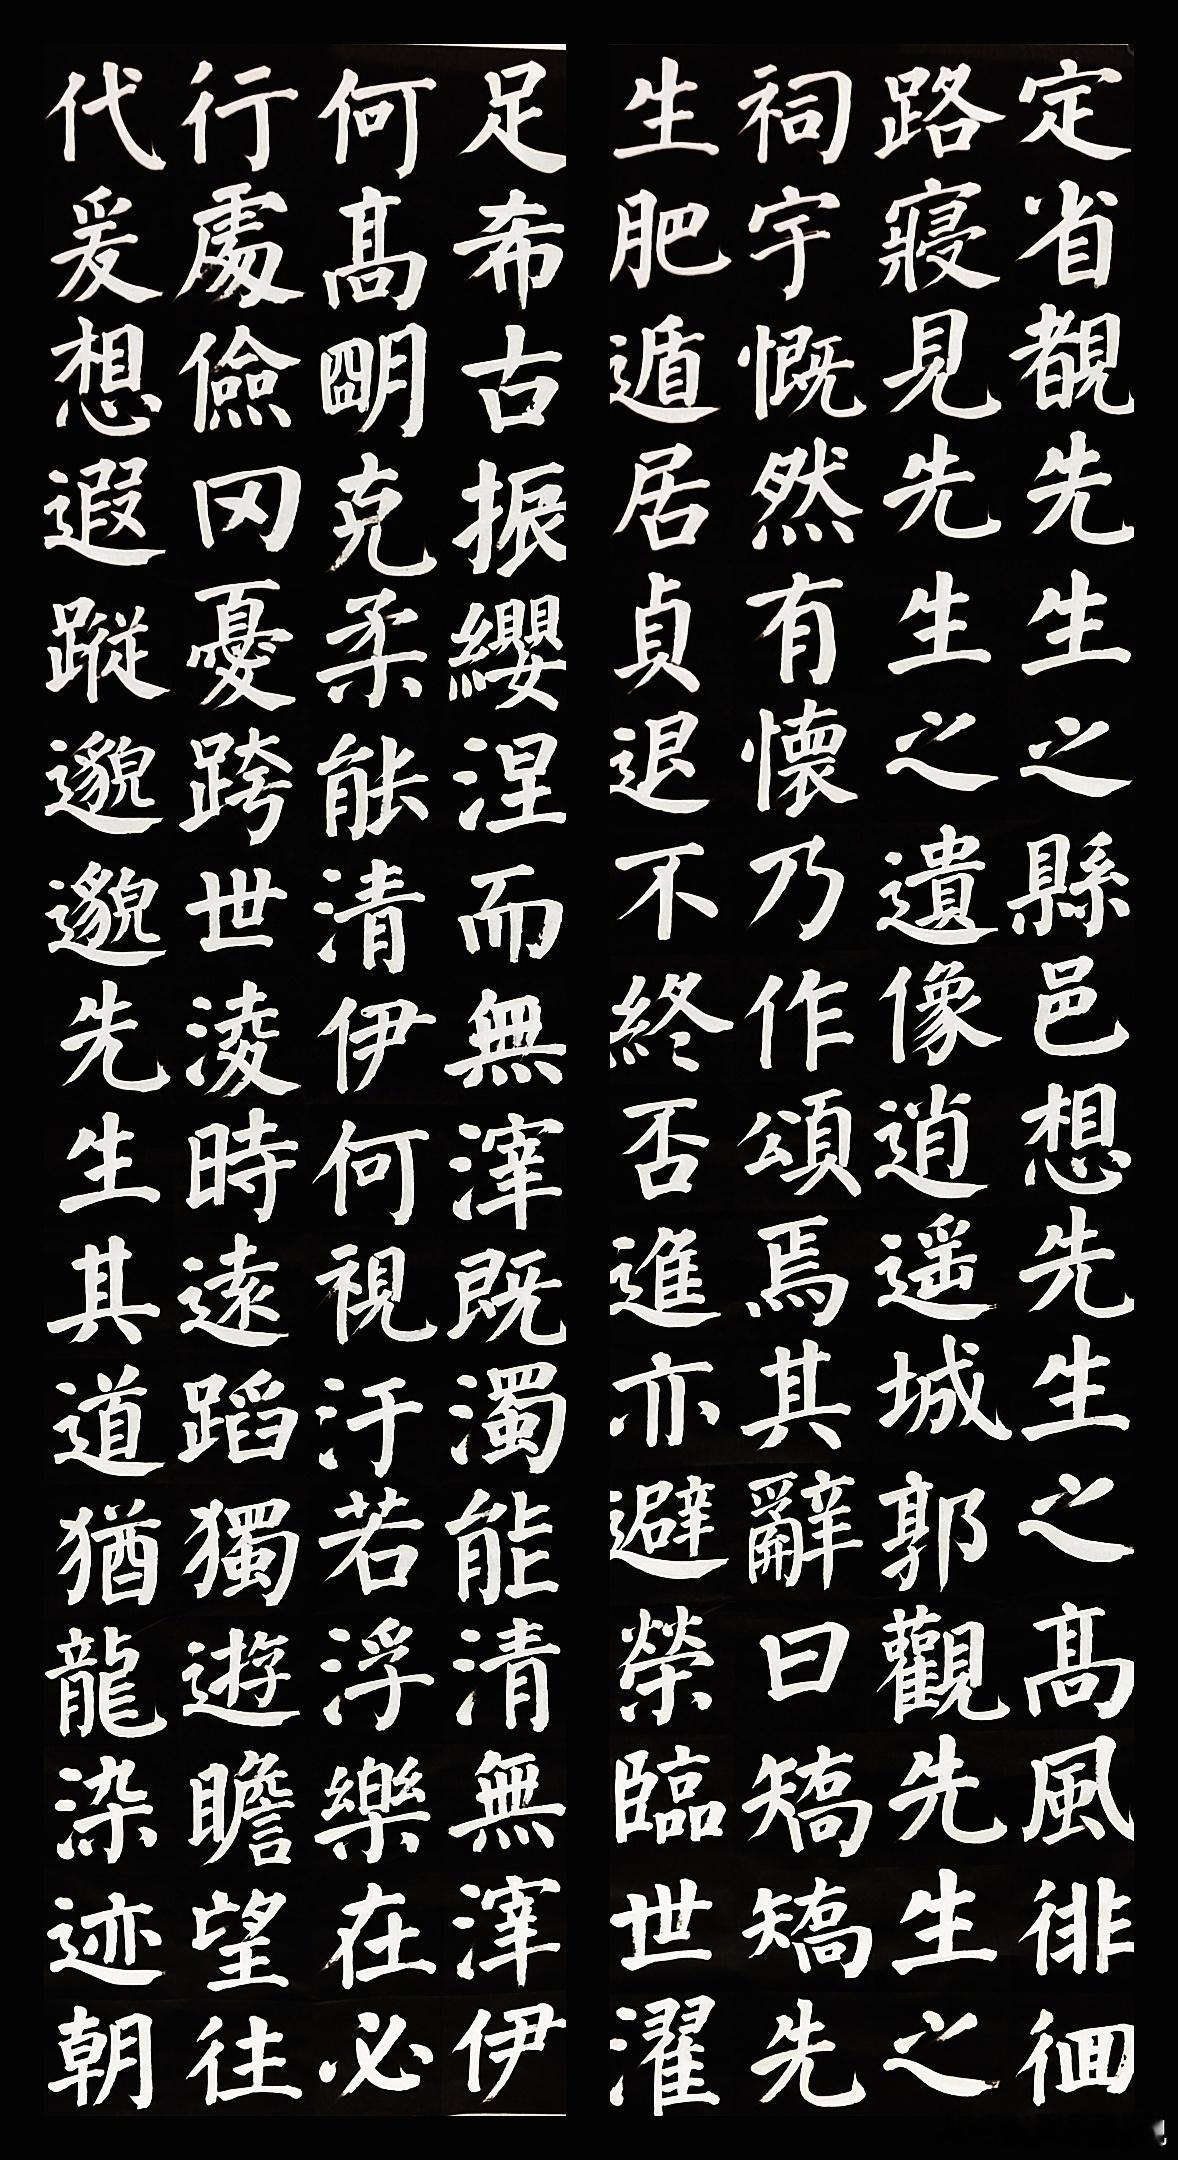 定省覩先生之縣邑想先生之髙風徘徊
路寢見先生之遺像逍遥城郭觀先生之
祠宇慨然有懷乃作頌焉其辭曰矯矯先
生肥遁居貞退不終否進亦避榮臨世濯
足希古振纓涅而無滓既濁能清無滓伊
何髙明克柔能清伊何視汙若浮樂在必
行處儉罔憂跨世淩時遠蹈獨遊瞻望往
代爰想遐蹤邈邈先生其道猶龍染迹朝